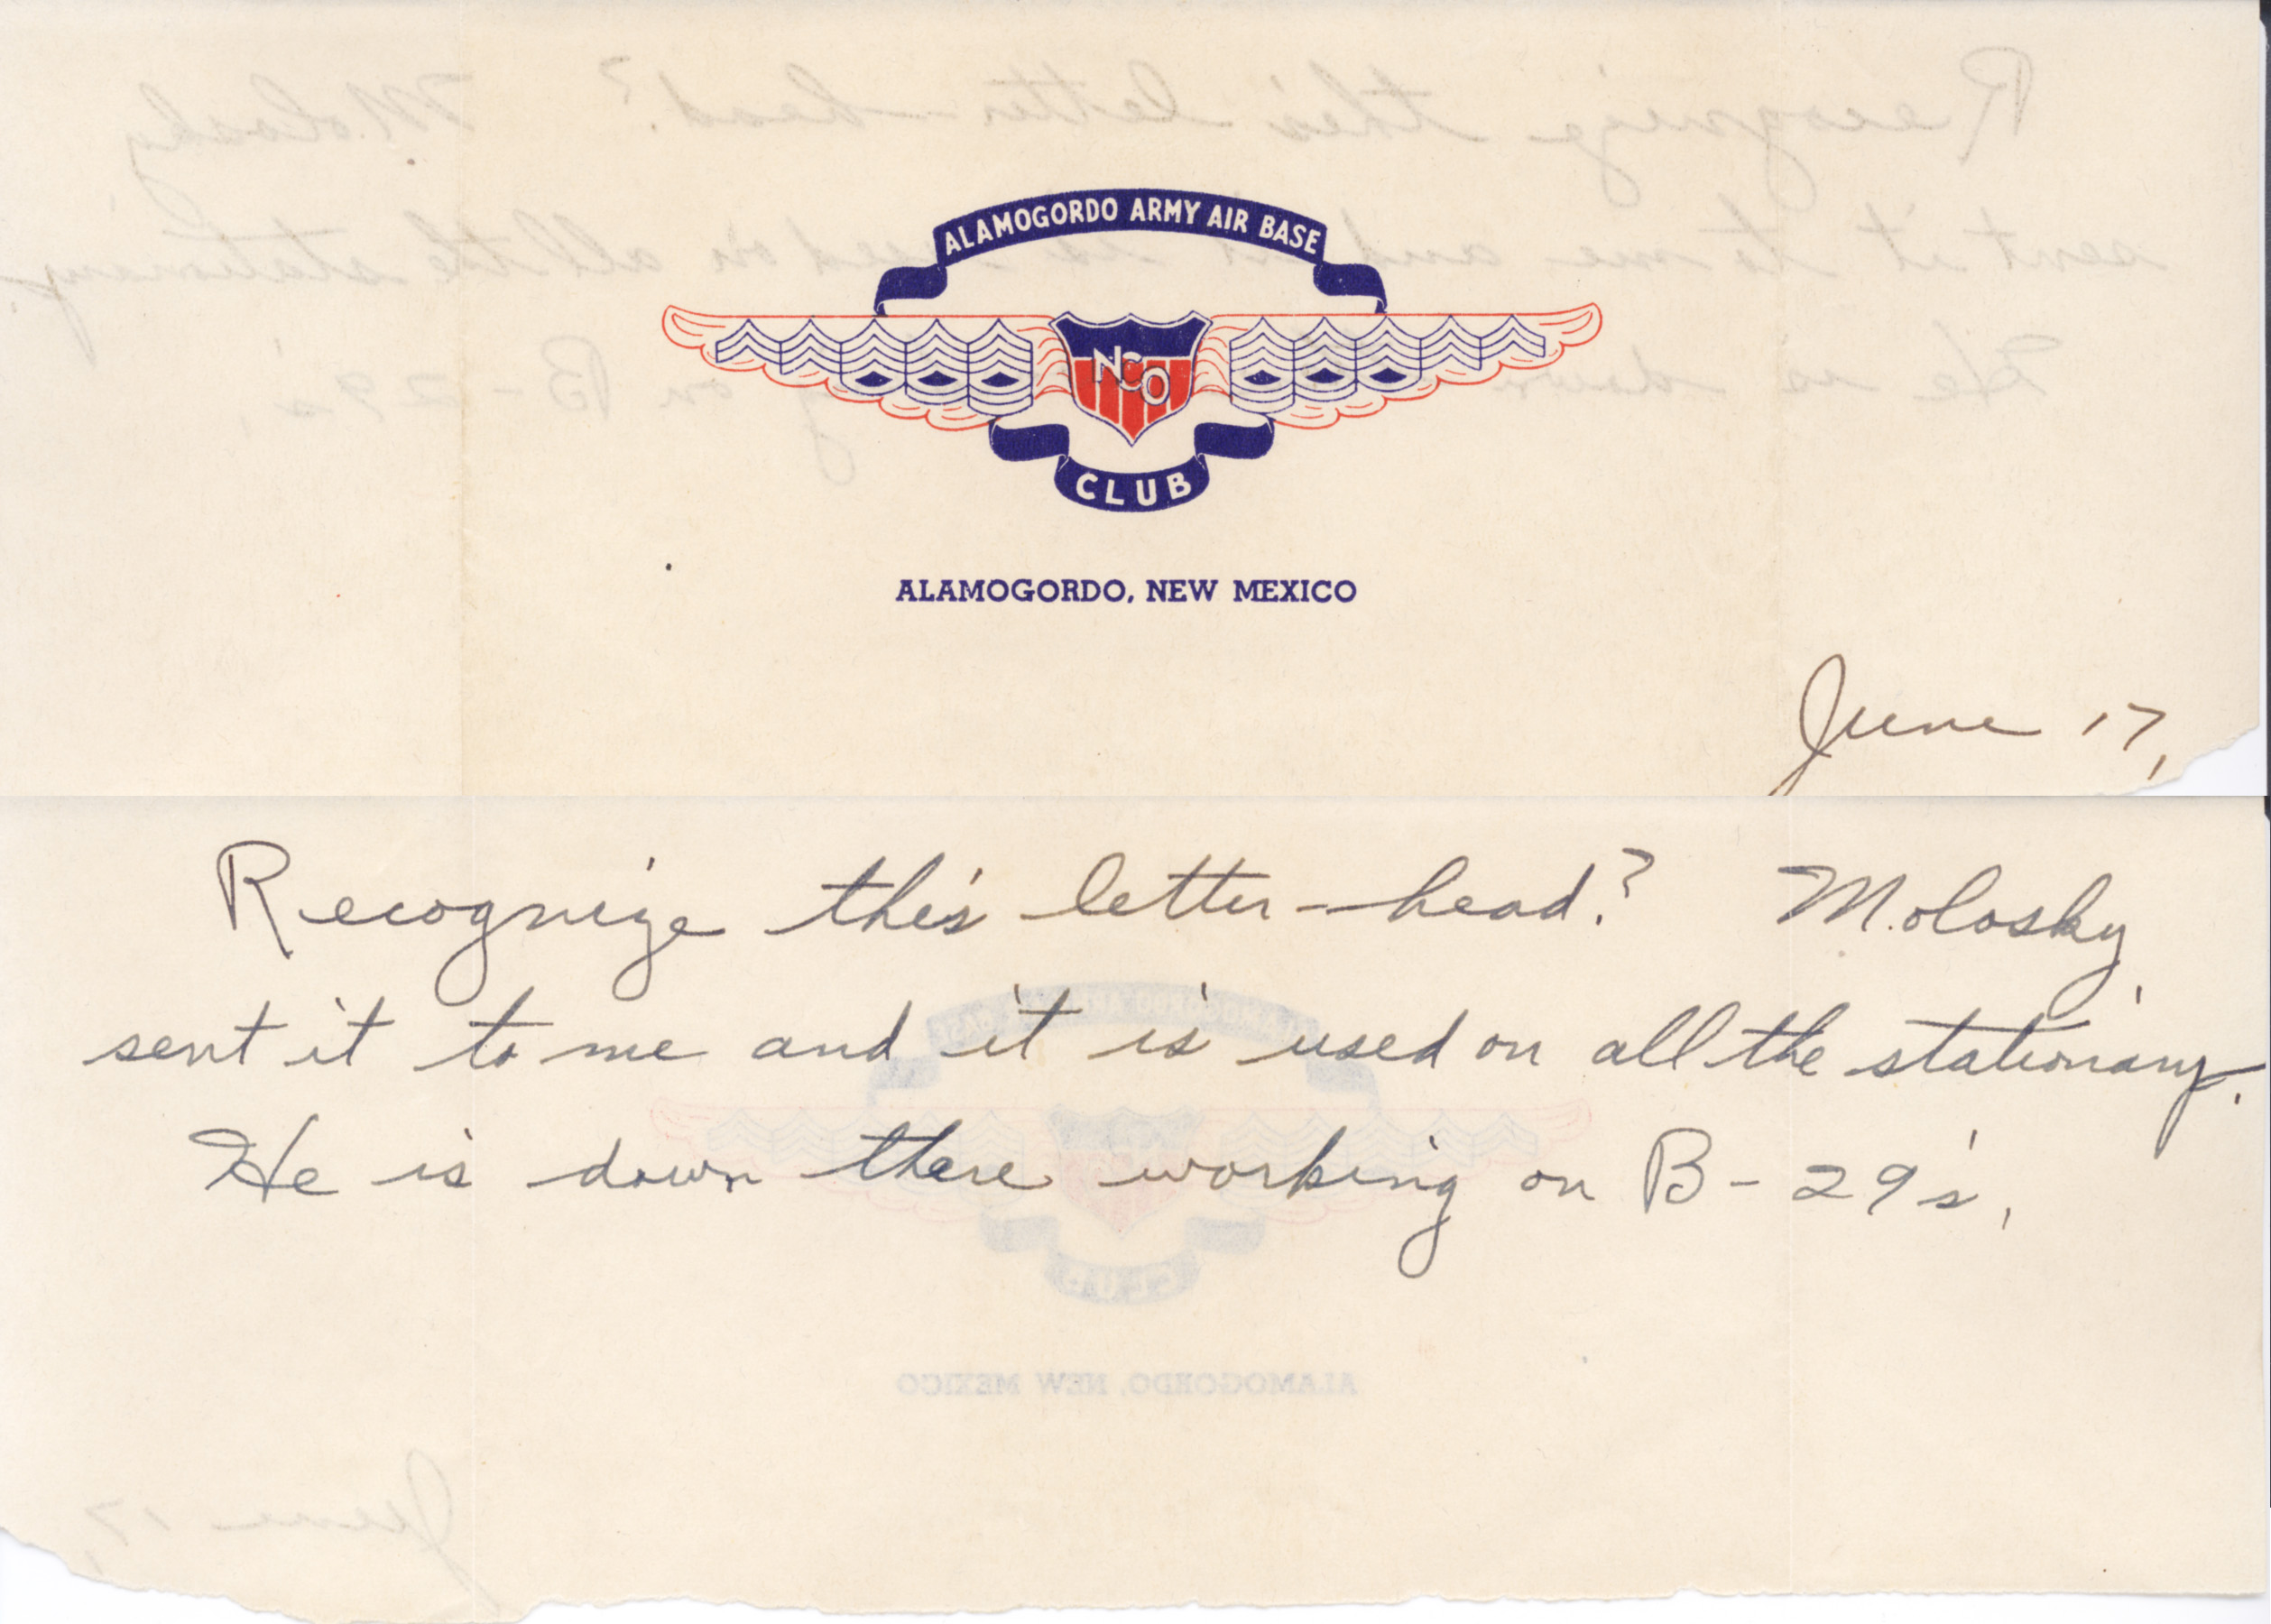 ALAMOGORDO ARMY AIR BASE
NCO
CLUB
ALAMOGORDO, NEW MEXICO
June 17,
Recognize this letter-head? Molosky
sent it to me and it is used on all the stationary.
He is down there working on B-29's.